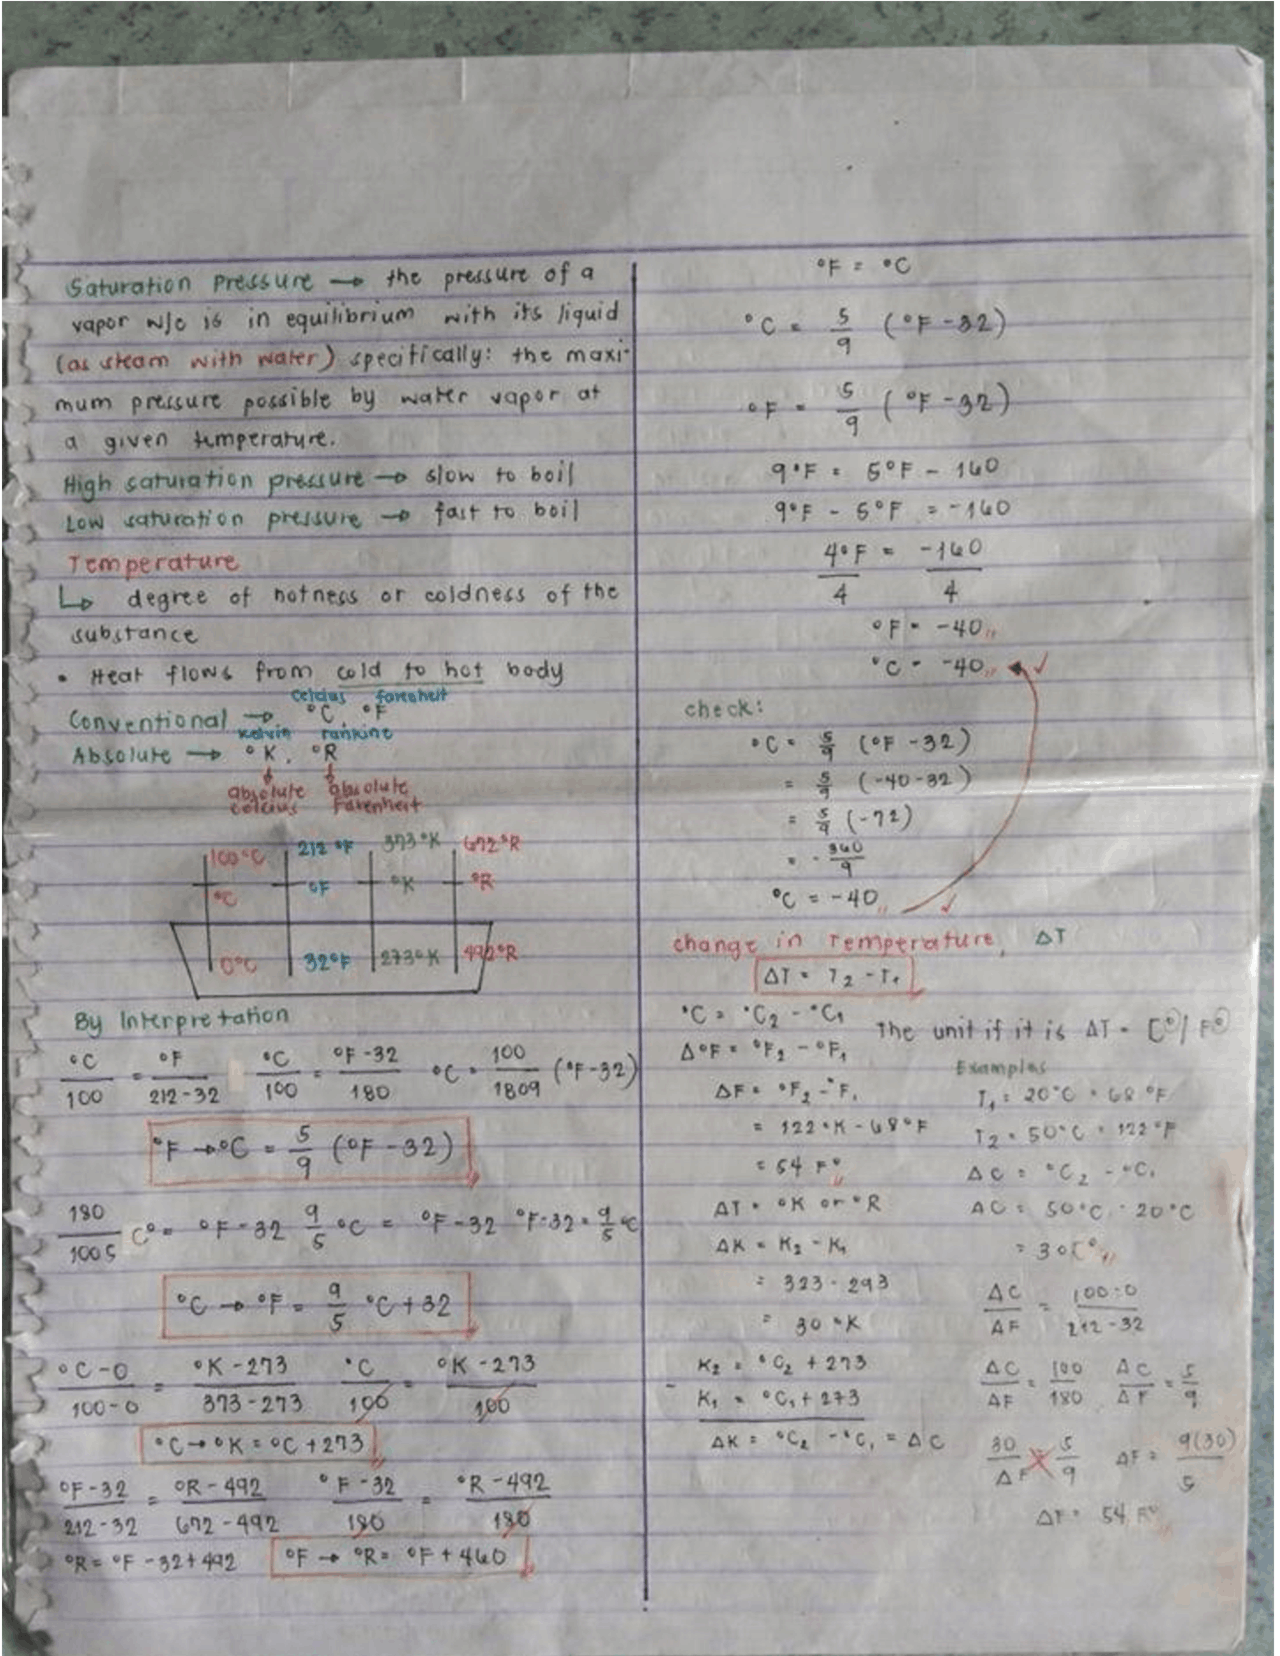 Saturation Pressure → the pressure of a
vapor w/c is in equilibrium with its liquid
(as steam with water) specifically: the maxi-
mum pressure possible by water vapor at
a given temperature.
High saturation pressure → slow to boil
Low saturation pressure → fast to boil
Temperature
↳ degree of hotness or coldness of the
substance
• Heat flows from cold to hot body
celcius farenheit
Conventional → °C, °F
kelvin rankine
Absolute → °K, °R
absolute absolute
celcius Farenheit
100°C 212°F 373°K 672°R
°C °F °K °R
0°C 32°F 273°K 492°R
By Interpretation
°C/100 = °F/212-32 °C/100 = °F-32/180 °C = 100/1809 (°F-32)
°F → °C = 5/9 (°F-32)
180/1005 C° = °F-32 9/5 °C = °F-32 °F-32 = 9/5 °C
°C → °F = 9/5 °C + 32
°C-0/100-0 = °K-273/373-273 °C/100 = °K-273/100
°C → °K = °C + 273
°F-32/212-32 = °R-492/672-492 °F-32/180 = °R-492/180
°R = °F-32+492 °F → °R = °F + 460
°F = °C
°C = 5/9 (°F-32)
°F = 5/9 (°F-32)
9°F = 5°F - 160
9°F - 5°F = -160
4°F/4 = -160/4
°F = -40
°C = -40 ✓
check:
°C = 5/9 (°F-32)
= 5/9 (-40-32)
= 5/9 (-72)
= -360/9
°C = -40 ✓
change in Temperature, ΔT
ΔT = T2 - T1
°C = °C2 - °C1
The unit if it is ΔT = C°/F°
Δ°F = °F2 - °F1
ΔF = °F2 - °F1
= 122°K - 68°F
= 54 F°
ΔT = °K or °R
ΔK = K2 - K1
= 323 - 293
= 30 °K
K2 = °C2 + 273
- K1 = °C1 + 273
ΔK = °C2 - °C1 = ΔC
Examples
T1 = 20°C = 68°F
T2 = 50°C = 122°F
ΔC = °C2 - °C1
ΔC = 50°C - 20°C
= 30C°
ΔC/ΔF = 100-0/212-32
ΔC/ΔF = 100/180 ΔC/ΔF = 5/9
30/ΔF = 5/9 ΔF = 9(30)/5
ΔF = 54 F°